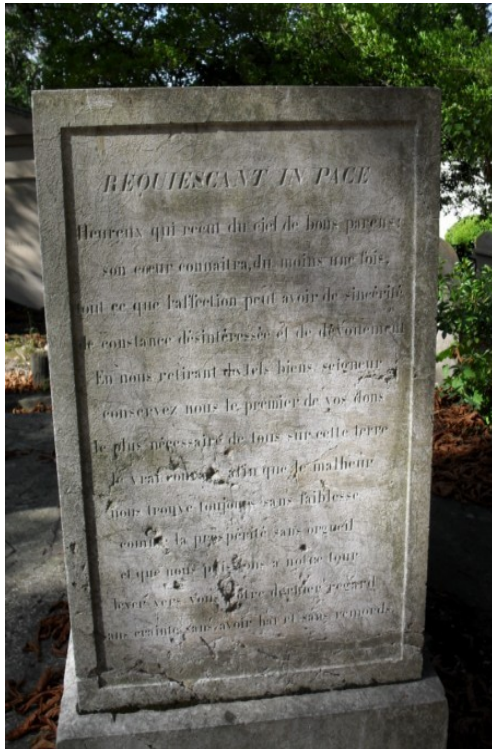 REQUIESCANT IN PACE
Heureux qui recut du ciel de bons parens;
son cœur connaitra, du moins une fois,
tout ce que l'affection peut avoir de sincérité
de constance désintéressée et de dévouement
En nous retirant de tels biens, seigneur
conservez nous le premier de vos dons
le plus nécessaire de tous sur cette terre
le vrai afin que le malheur
nous trouve toujours sans faiblesse
comme la prospérité sans orgueil
et que nous puissions a notre tour
lever vers vous notre dernier regard
sans crainte, sans avoir haï et sans remords.